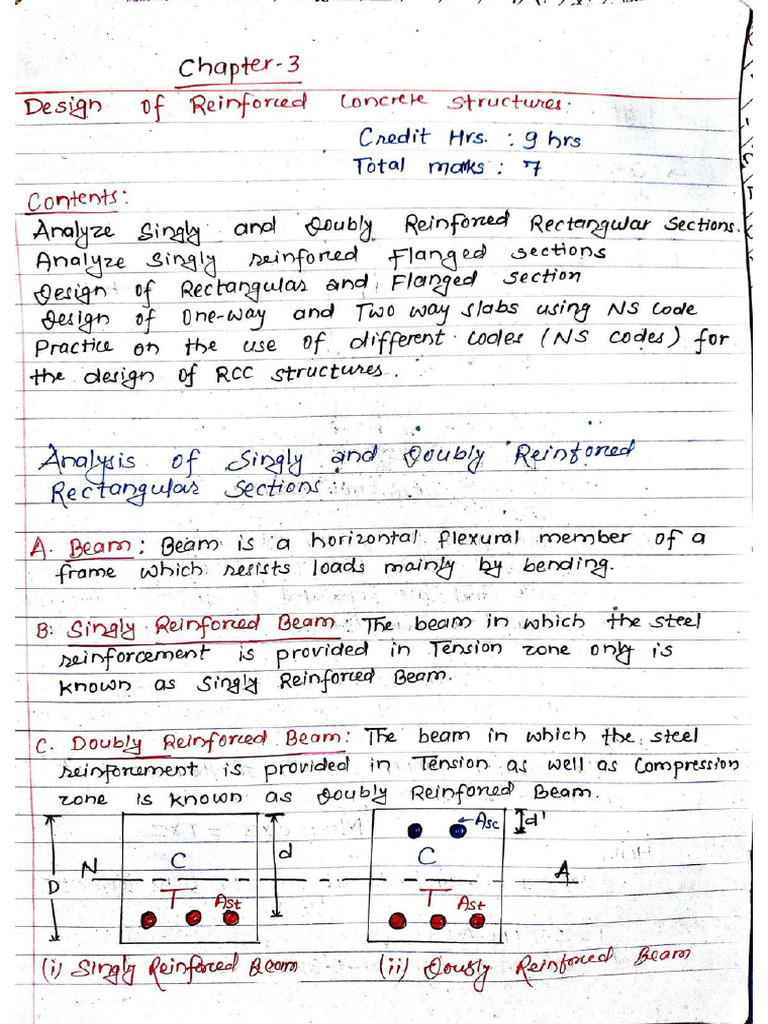 Chapter-3
Design of Reinforced Concrete Structures.
Credit Hrs. : 9 hrs
Total marks : 7
Contents:
Analyze Singly and Doubly Reinforced Rectangular Sections.
Analyze Singly reinforced Flanged sections
Design of Rectangular and Flanged section
Design of One-way and Two way slabs using NS code
Practice on the use of different codes (NS codes) for
the design of RCC structures.
Analysis of Singly and Doubly Reinforced
Rectangular Sections:
A. Beam: Beam is a horizontal flexural member of a
frame which resists loads mainly by bending.
B: Singly Reinforced Beam: The beam in which the steel
reinforcement is provided in Tension zone only is
known as Singly Reinforced Beam.
C. Doubly Reinforced Beam: The beam in which the steel
reinforement is provided in Tension as well as Compression
zone is known as Doubly Reinforced Beam.
Asc d'
N C d C A
D T Ast T Ast
(i) Singly Reinforced Beam (ii) Dously Reinforced Beam